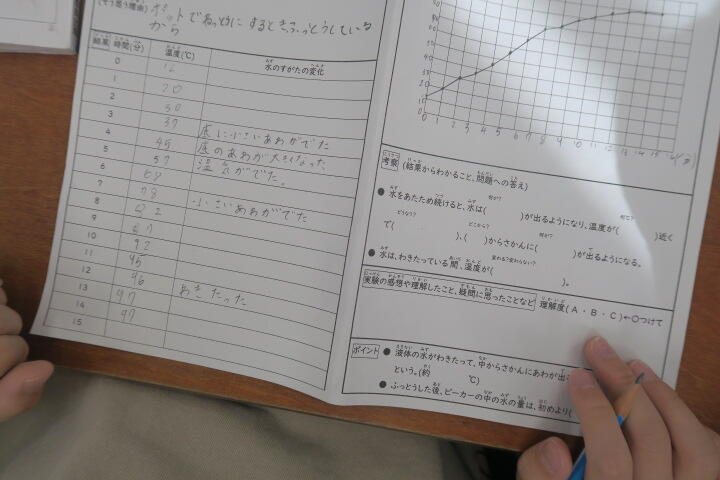 (そう思う理由) ポットでねっとうにするとき ふっとうしている
から
結果 時間(分) 温度(℃) 水のすがたの変化
0 12
1 20
2 30
3 37
4 45 底に小さいあわがでた
5 57 底のあわが大きくなった
6 68 湯気がでた。
7 78
8 82 小さいあわがでた
9 87
10 92
11 95
12 96
13 97 わきたった
14 97
15
80
70
60
50
40
30
20
10
0 1 2 3 4 5 6 7 8 9 10 11 12 13 14 15 16(分)
考察 (結果からわかること、問題への答え)
● 水をあたため続けると、水は( 何が? )が出るようになり、温度が( 何℃? )近く
で( どうなり? )、( どこから? )からさかんに( 何が? )が出るようになる。
● 水は、わきたっている間、温度が( 変わる?変わらない? )。
実験の感想や理解したこと、疑問に思ったことなど 理解度(A・B・C)←○つけて
ポイント ● 液体の水がわきたって、中からさかんにあわが出
という。(約 ℃)
● ふっとうした後、ビーカーの中の水の量は、初めより(